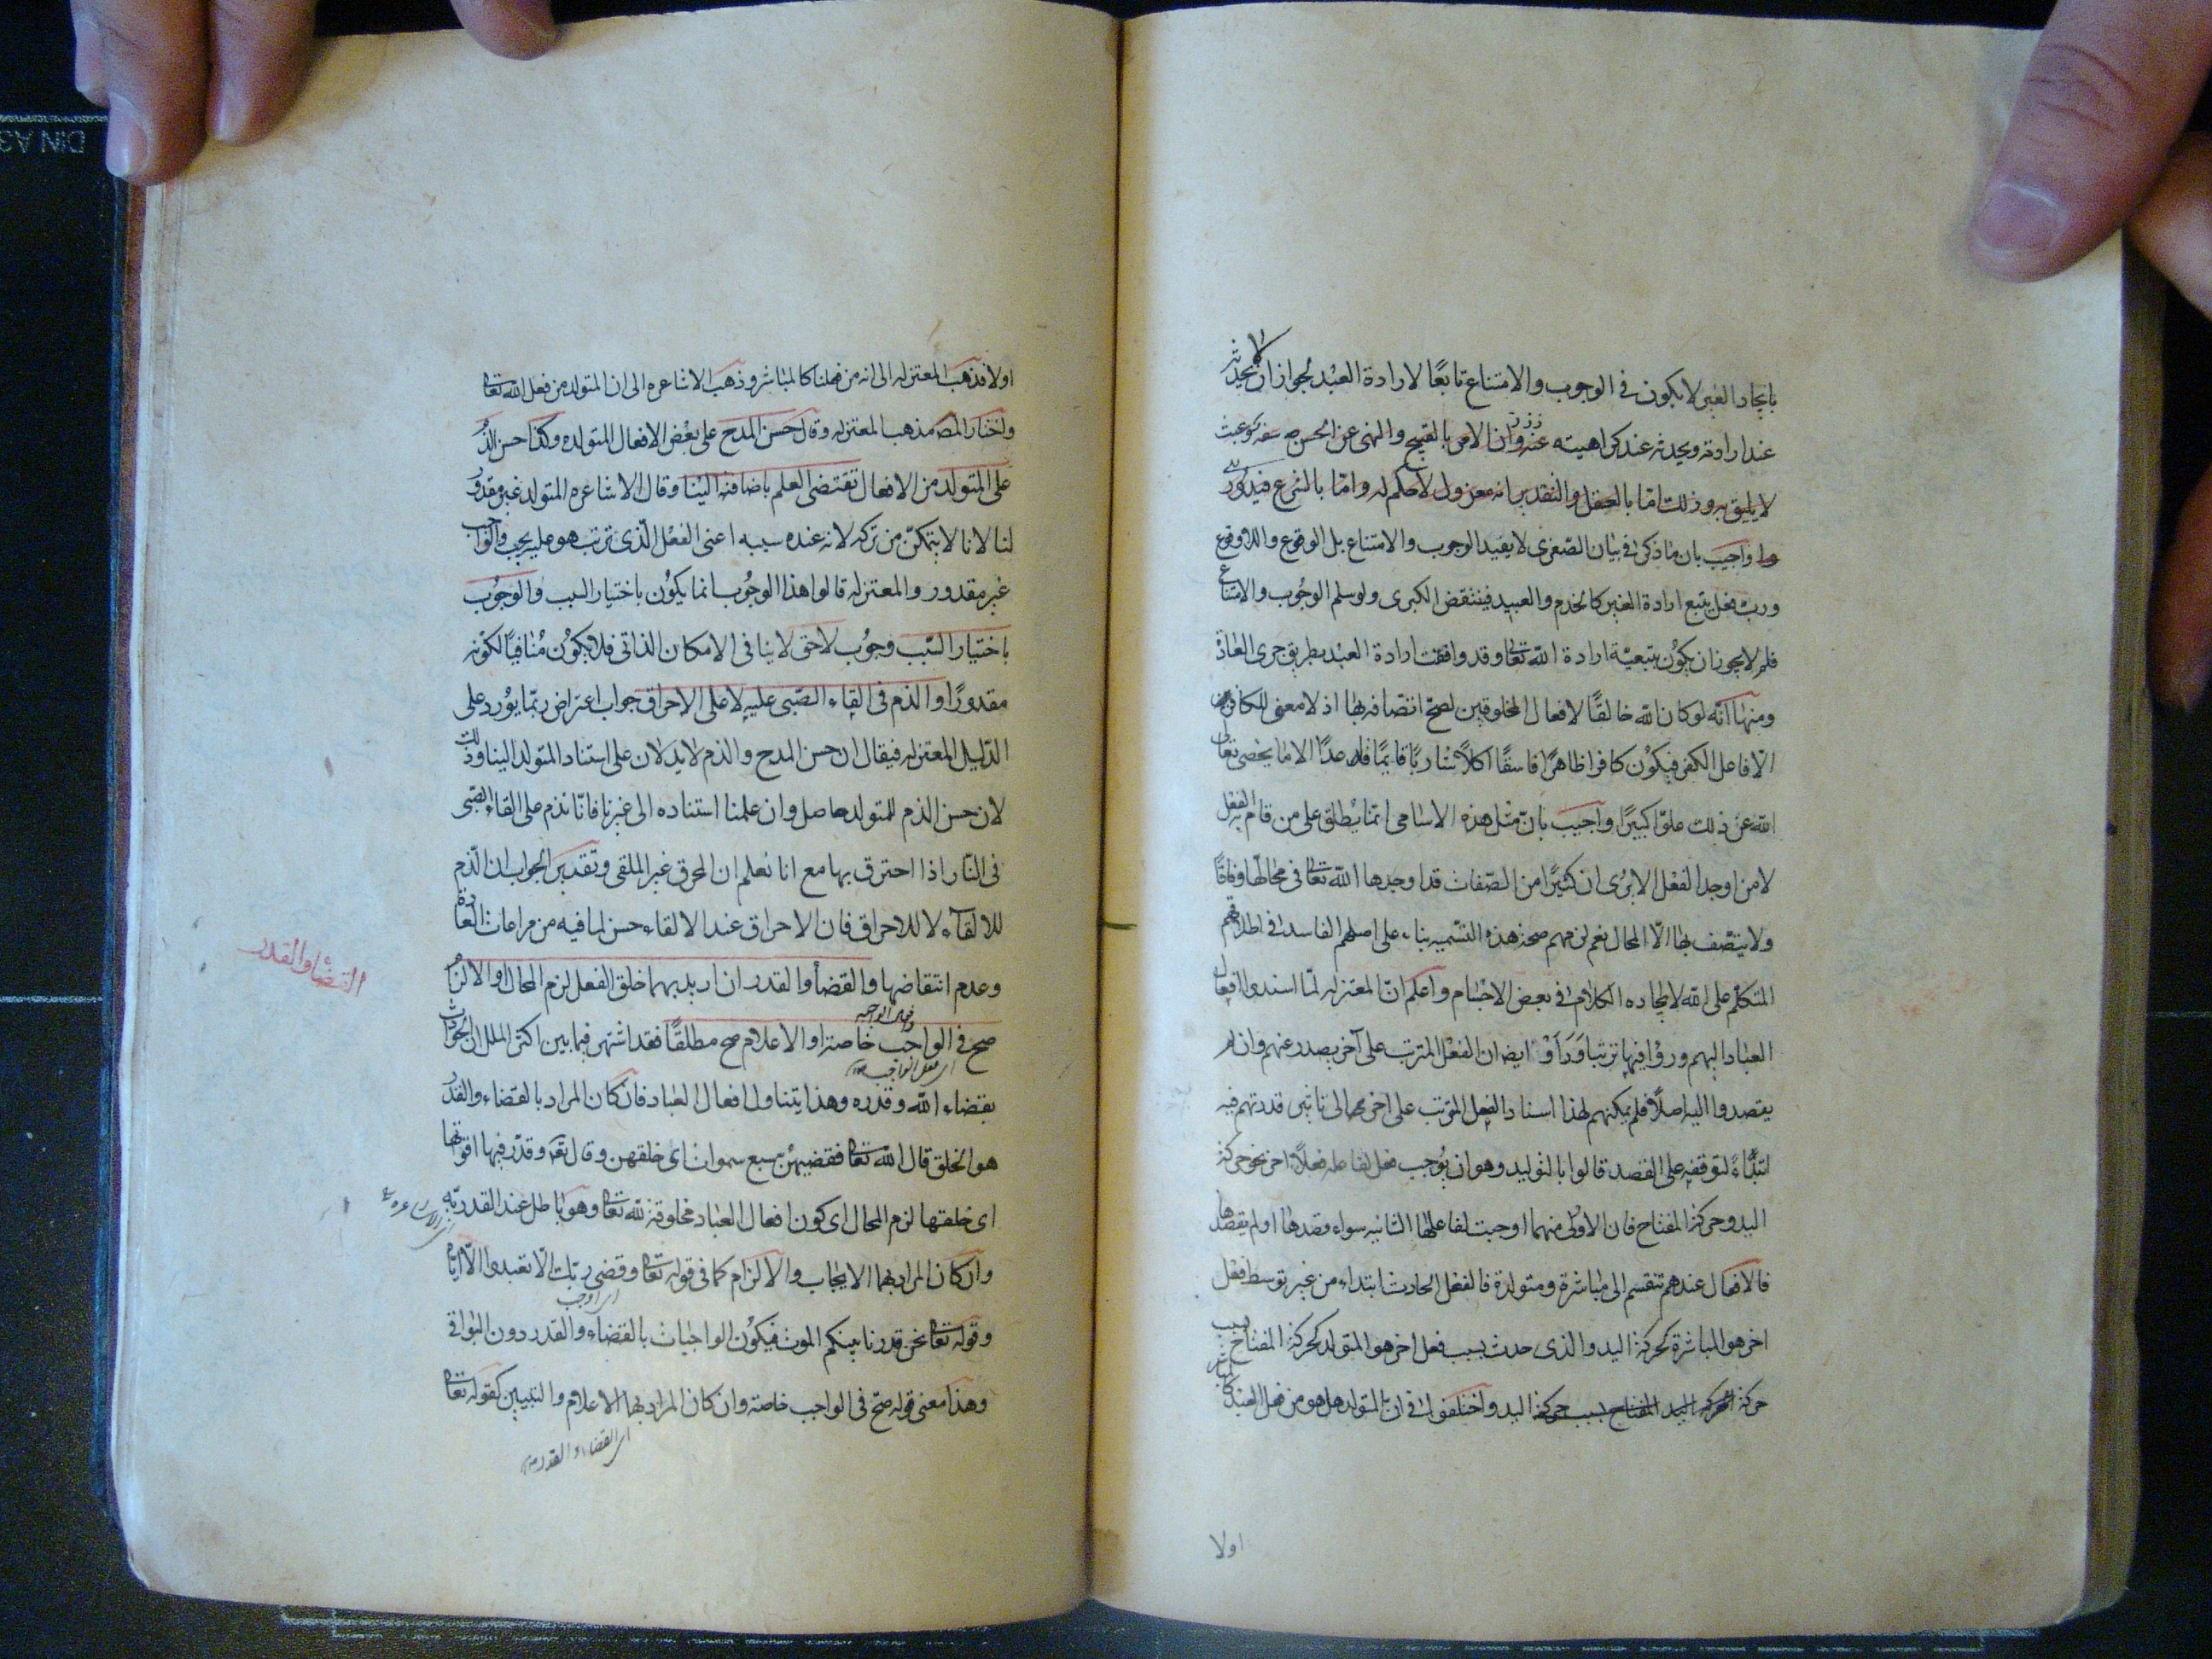 بايجاد الغير لا يكون في الوجوب والامتناع تابعًا لارادة العبد لجواز ان لا يحدث
عند ارادته ويحدثه عند كراهيته عنه وان الامر بالقبيح والنهى عن الحسن سفه عبث
لا يليق به وذلك امّا بالعقل والتقدير انه معزول لا حكم له وامّا بالشرع فيدور
واجيب بان ما ذكر في بيان الصّغرى لا يفيد الوجوب والامتناع بل الوقوع واللاوقوع
وربّ فعل يتبع ارادة الغير كالخدم والعبيد فينتقض الكبرى ولو سلم الوجوب والامتناع
فلم لا يجوز ان يكون بتبعيّة ارادة الله تعا وقد وافقت ارادة العبد بطريق جرى العادة
ومنها انّه لو كان الله خالقًا لافعال المخلوقين لصحّ اتصافه بها اذ لا معنى للكافر
الا فاعل الكفر فيكون كافرا ظالمًا فاسقًا آكلاً شاربًا قائمًا قاعدًا الا ما يحصى تعالى
الله عن ذلك علوّا كبيرًا واجيب بانّ مثل هذه الاسامى انّما يطلق على من قام به الفعل
لا من اوجد الفعل الا يرى ان كثيرًا من الصّفات قد اوجدها الله تعا في محالّها وفاقًا
ولا يتّصف بها الّا المحال نعم لزمهم صحة هذه التّسميه بناء على اصلهم الفاسد في اطلاقهم
المتكلّم على الله لايجاده الكلام في بعض الاجسام واعلم انّ المعتزله لمّا اسندوا افعال
العباد اليهم وراوا فيها ترتبا وراوا ايضا ان الفعل المترتب على آخر يصدر عنهم وان لم
يقصدوا اليه اصلًا فلم يمكنهم لهذا اسناد الفعل المرتب على آخر الى تاثير قدرتهم فيه
ابتداءً لتوقفه على القصد قالوا بالتوليد وهو ان يوجب فعل لفاعله فعلاً آخر نحو حركة
اليد وحركة المفتاح فان الاولى منهما اوجبت لفاعلها الثانيه سواء قصدها او لم يقصدها
فالافعال عندهم تنقسم الى مباشرة ومتولدة فالفعل الحادث ابتداء من غير توسط فعل
اخر هو المباشرة كحركة اليد والذى حدث بسبب فعل اخر هو المتولد كحركة المفتاح بسبب
حركة اليد واختلفوا في ان المتولد هل هو من فعل العبد كالمباشر
اولا
اولا فذهب المعتزله الى انه من فعلنا كالمباشر وذهب الاشاعره الى ان المتولد من فعل الله تعا
واختار المص مذهب المعتزله وقال حسن المدح على بعض الافعال المتولده وكذا حسن الذم
على المتولد من الافعال تقتضى العلم باضافته الينا وقال الاشاعره المتولد غير مقدور
لنا لانا لا نتمكن من تركه لانه عند سببه اعنى الفعل الّذى ترتب هو عليه يجب والواجب
غير مقدور والمعتزله قالوا هذا الوجوب انما يكون باختيار السبب والوجوب
باختيار السّبب وجوب لاحق لا ينافى الامكان الذاتى فلا يكون منافيًا لكونه
مقدورًا والذم فى القاء الصّبى عليه لا على الاحراق جواب اعتراض ربّما يورد على
الدّليل المعتزله فيقال ان حسن المدح والذم لا يدلان على استناد المتولد الينا وذلك
لان حسن الذم للمتولد حاصل وان علمنا استناده الى غيرنا فانّا نذم على القاء الصّبى
فى النار اذا احترق بها مع انا نعلم ان المحرق غير الملقى وتقدير الجواب ان الذم
للالقاء لا للاحراق فان الاحراق عند الالقاء حسن لما فيه من مراعات العادة
وعدم انتقاضها والقضاء والقدر ان اريد بهما خلق الفعل لزم المحال او الالزام
صح في الواجب خاصة او الاعلام صح مطلقًا فقد اشتهر فيما بين اكثر الملل ان الحوادث
بقضاء الله وقدره وهذا يتناول افعال العباد فان كان المراد بالقضاء والقدر
هو الخلق قال الله تعا فقضيهن سبع سموات اى خلقهن وقال تعه وقدّر فيها اقواتها
اى خلقها لزم المحال اى كون افعال العباد مخلوقة لله تعا وهو باطل عند القدريّه
وان كان المراد بهما الايجاب والالزام كما فى قوله تعا وقضى ربّك الّا تعبدوا الّا ايّاه
اى اوجب
وقوله تعا نحن قدرنا بينكم الموت فيكون الواجبات بالقضاء والقدر دون البواقى
وهذا معنى قوله صحّ فى الواجب خاصة وان كان المراد بها الاعلام والتبيين كقوله تعا
اى القضاء والقدر
القضاء والقدر